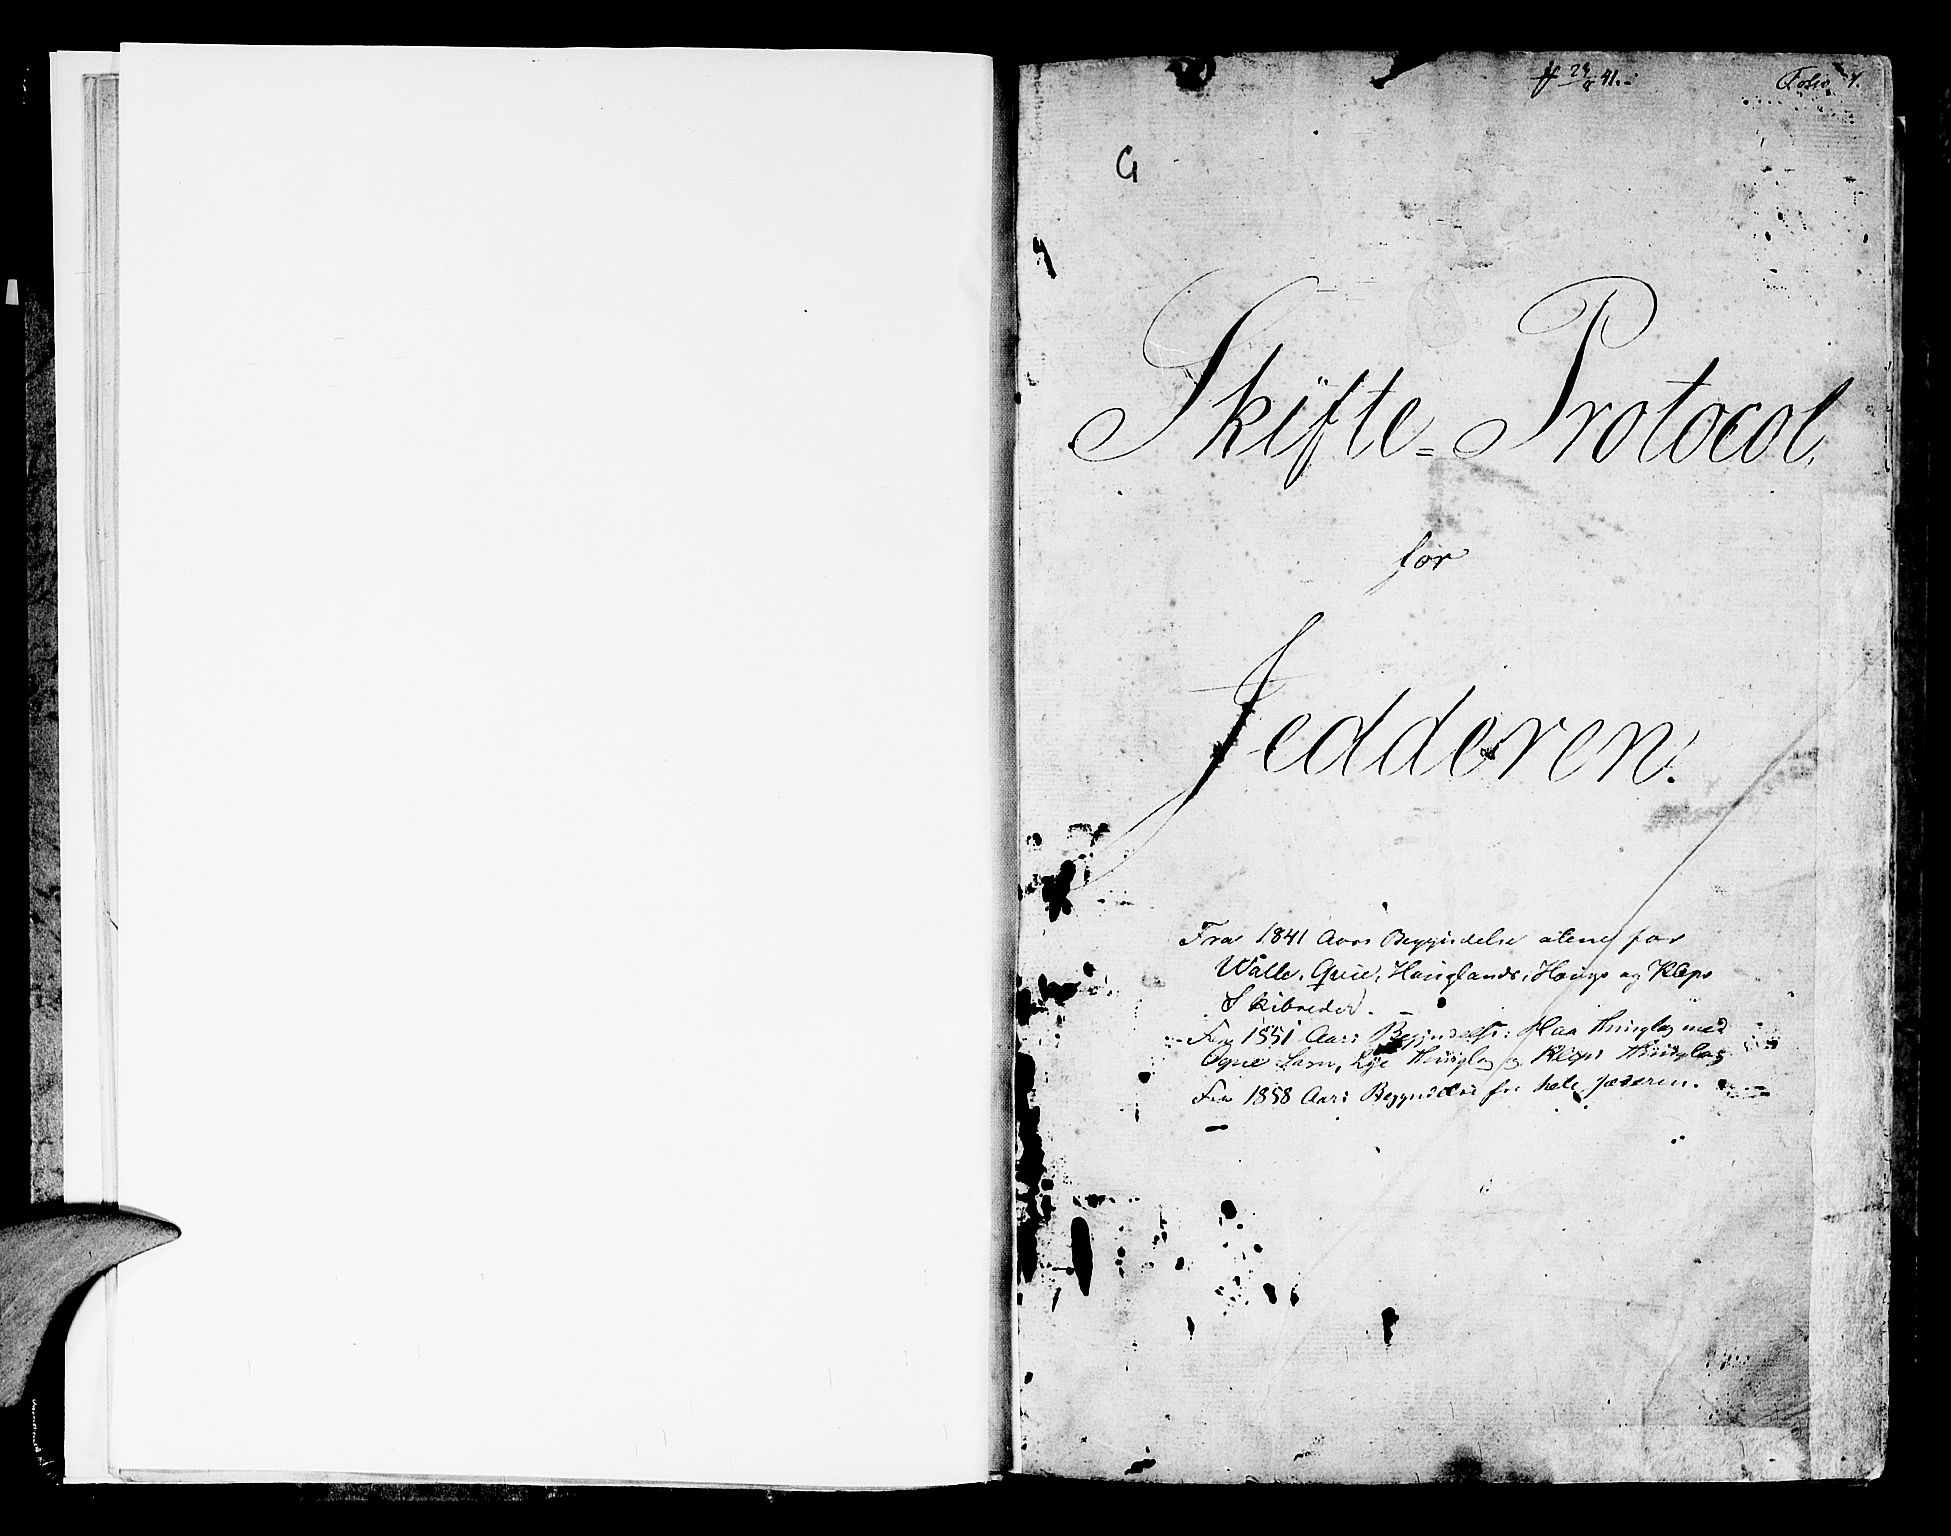 24/8 41.
Folio 1.
G
Skifte=Protocol.
for
Jedderen.
Fra 1841 Aars Begyndelse alene for
Walle, Qvie, Hauglands, Haugs og Kleps
Skibreder.
Fra 1851 Aars Begyndelse: Haa Thinglag med
Ogne Sogn, Lye Thinglag og Kleps Thinglag
Fra 1858 Aars Begyndelse for hele Jæderen.